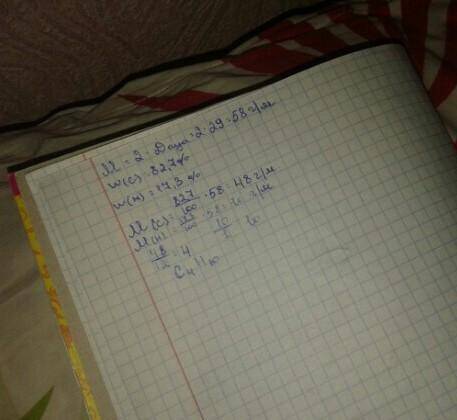 M = 2 · Dвозд = 2 · 29 = 58 г/м
w(C) = 82,7%
w(H) = 17,3%
M(C) = 82,7/100 · 58 = 48 г/м
M(H) = 17,3/100 · 58 = 10 г/м
48/12 = 4 10/1 = 10
C4H10